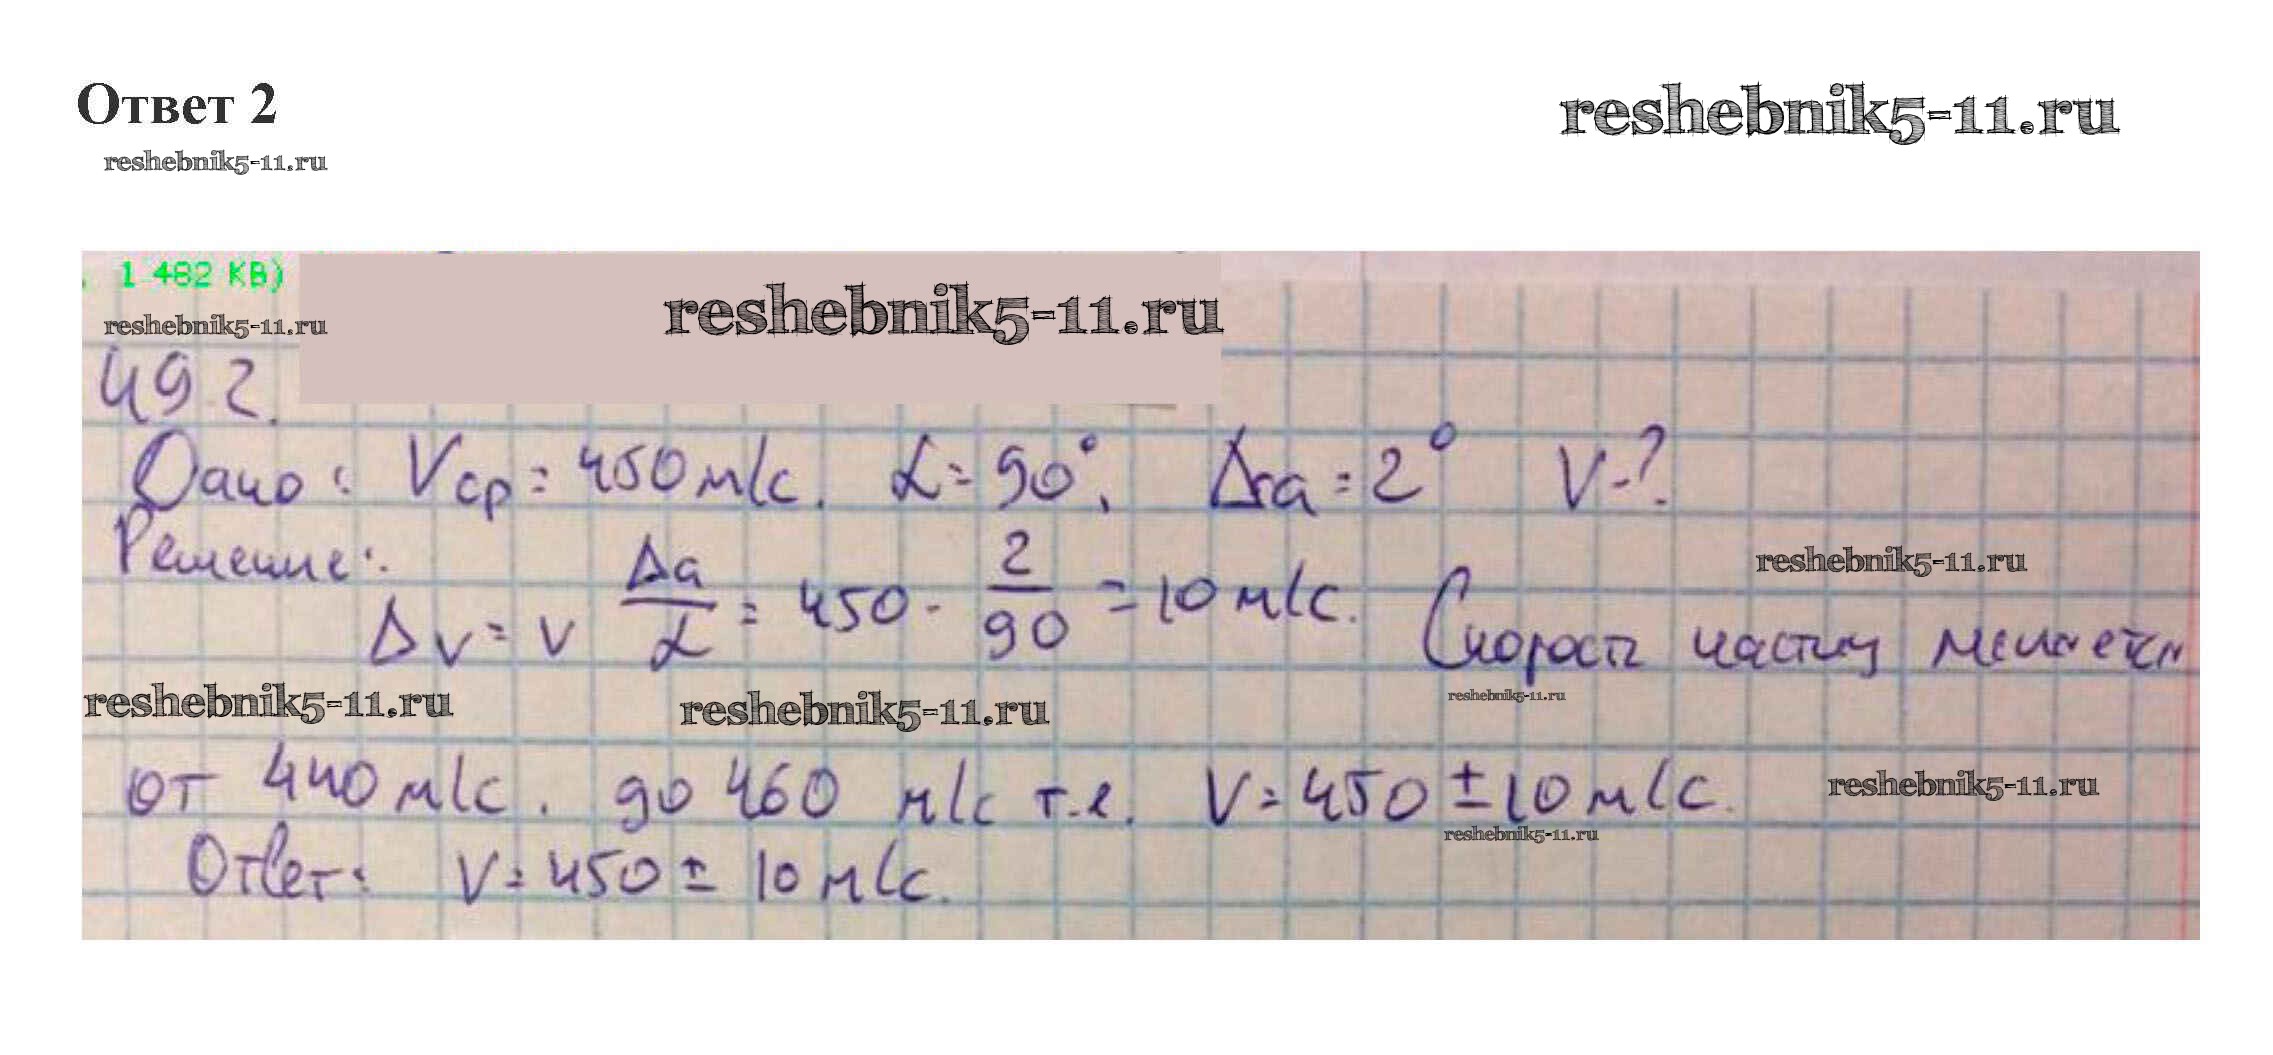 Ответ 2
reshebnik5-11.ru
reshebnik5-11.ru
1 482 KB)
reshebnik5-11.ru
reshebnik5-11.ru
492.
Дано: Vср = 450 м/с. α = 90°, Δa = 2° V-?
Решение:
Δv = v Δa/α = 450 · 2/90 = 10 м/с. Скорость частиц меняется
reshebnik5-11.ru
reshebnik5-11.ru
reshebnik5-11.ru
reshebnik5-11.ru
от 440 м/с. до 460 м/с т.е. V = 450 ± 10 м/с.
reshebnik5-11.ru
reshebnik5-11.ru
Ответ: V = 450 ± 10 м/с.